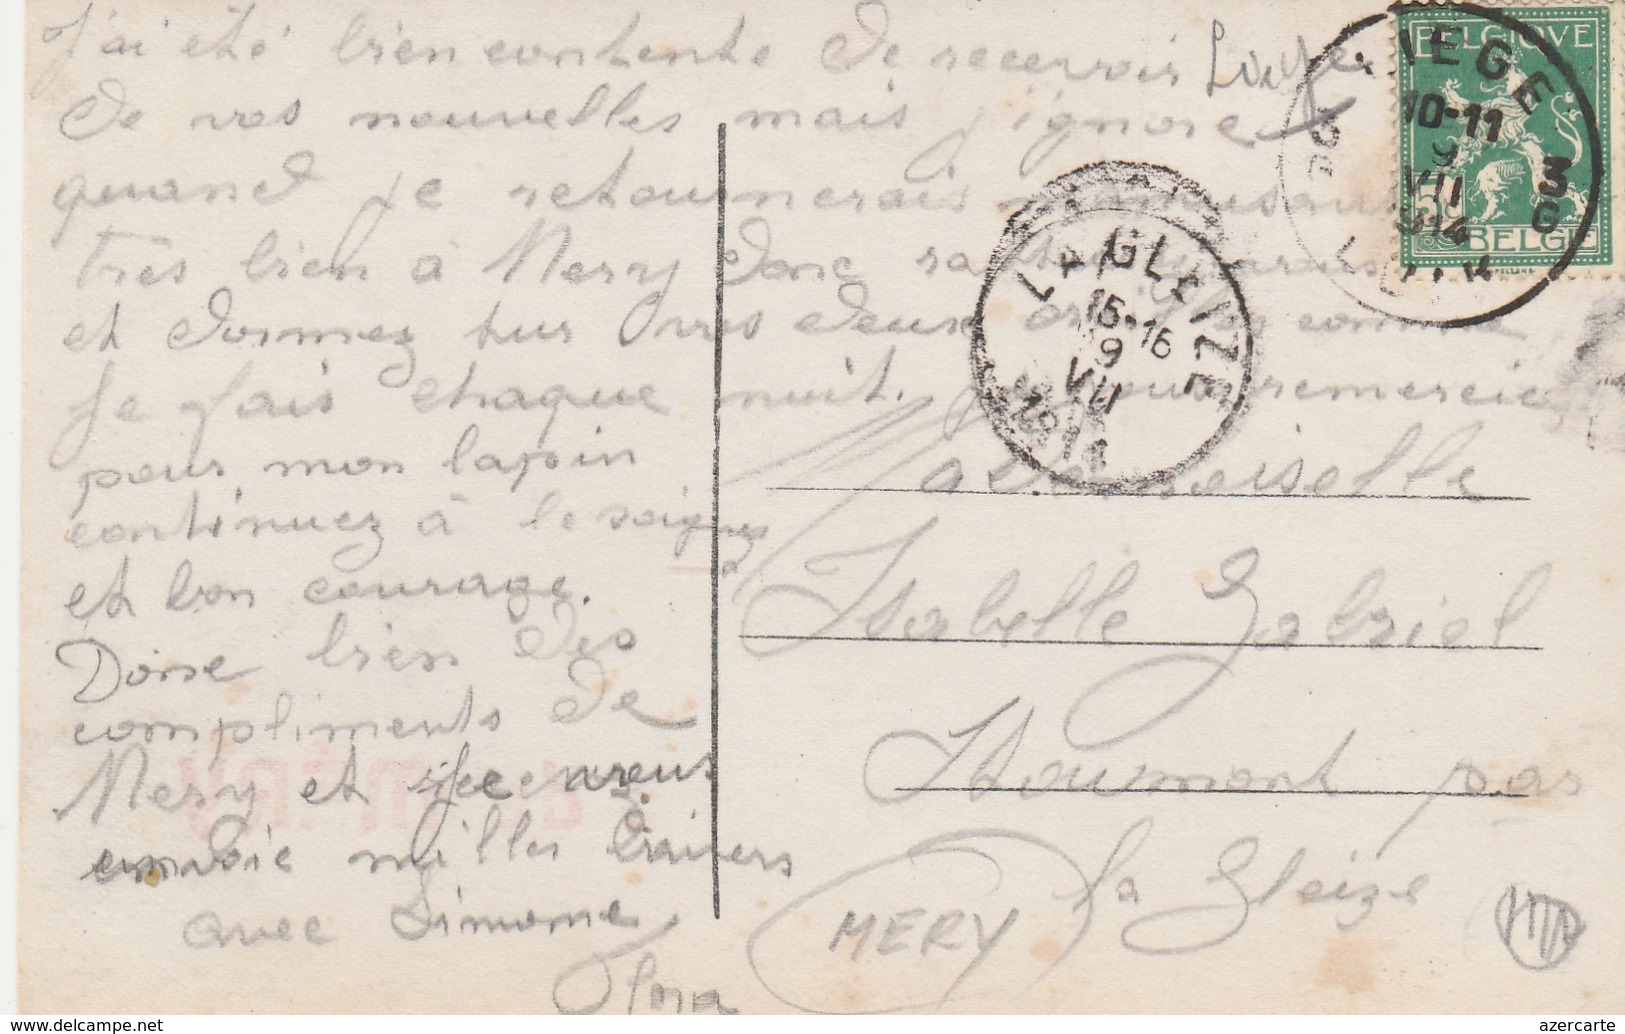 J'ai été bien contente de recevoir Louise
de vos nouvelles mais j'ignore
quand je retournerais
très bien à Mery donc
et dormez sur vos deux oreilles comme
je fais chaque nuit. je vous remercie
pour mon lapin
continuez à le soignez
et bon courage.
Done bien des
compliments de
Mery et je vous
envoie milles baisers
avec Simone
Flora
BELGIQUE
BELGIE
LIEGE
10-11
9
VII
1914
3 G
LA GLEIZE
15-16
9
VII
1914
Mademoiselle
Isabelle Gabriel
Stoumont par
la Gleize
MERY
www.delcampe.net
azercarte